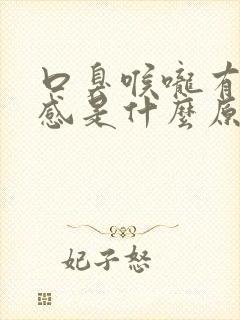 口臭喉嚨有
感是什麼原
妃子怒